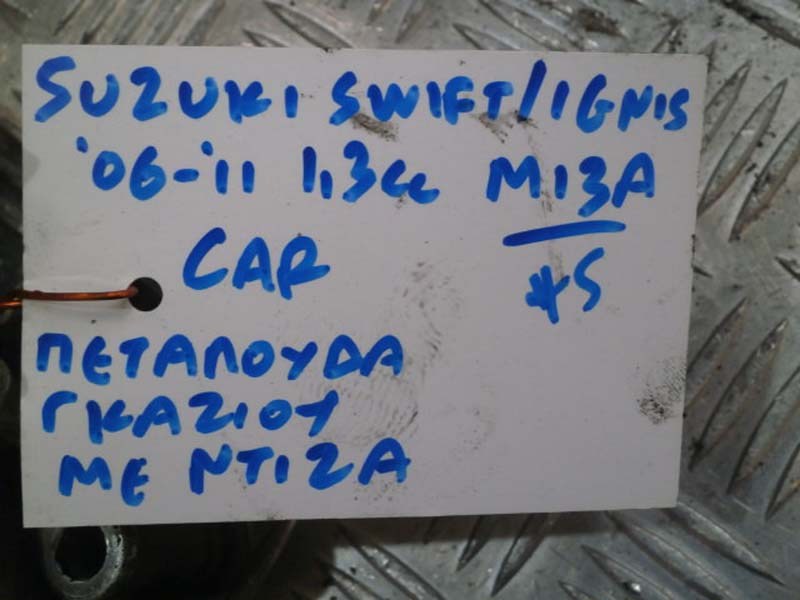 SUZUKI SWIFT/IGNIS
'06-'11 1,3cc M13A
*S
CAR
ΠΕΤΑΛΟΥΔΑ
ΓΚΑΖΙΟΥ
ΜΕ ΝΤΙΖΑ